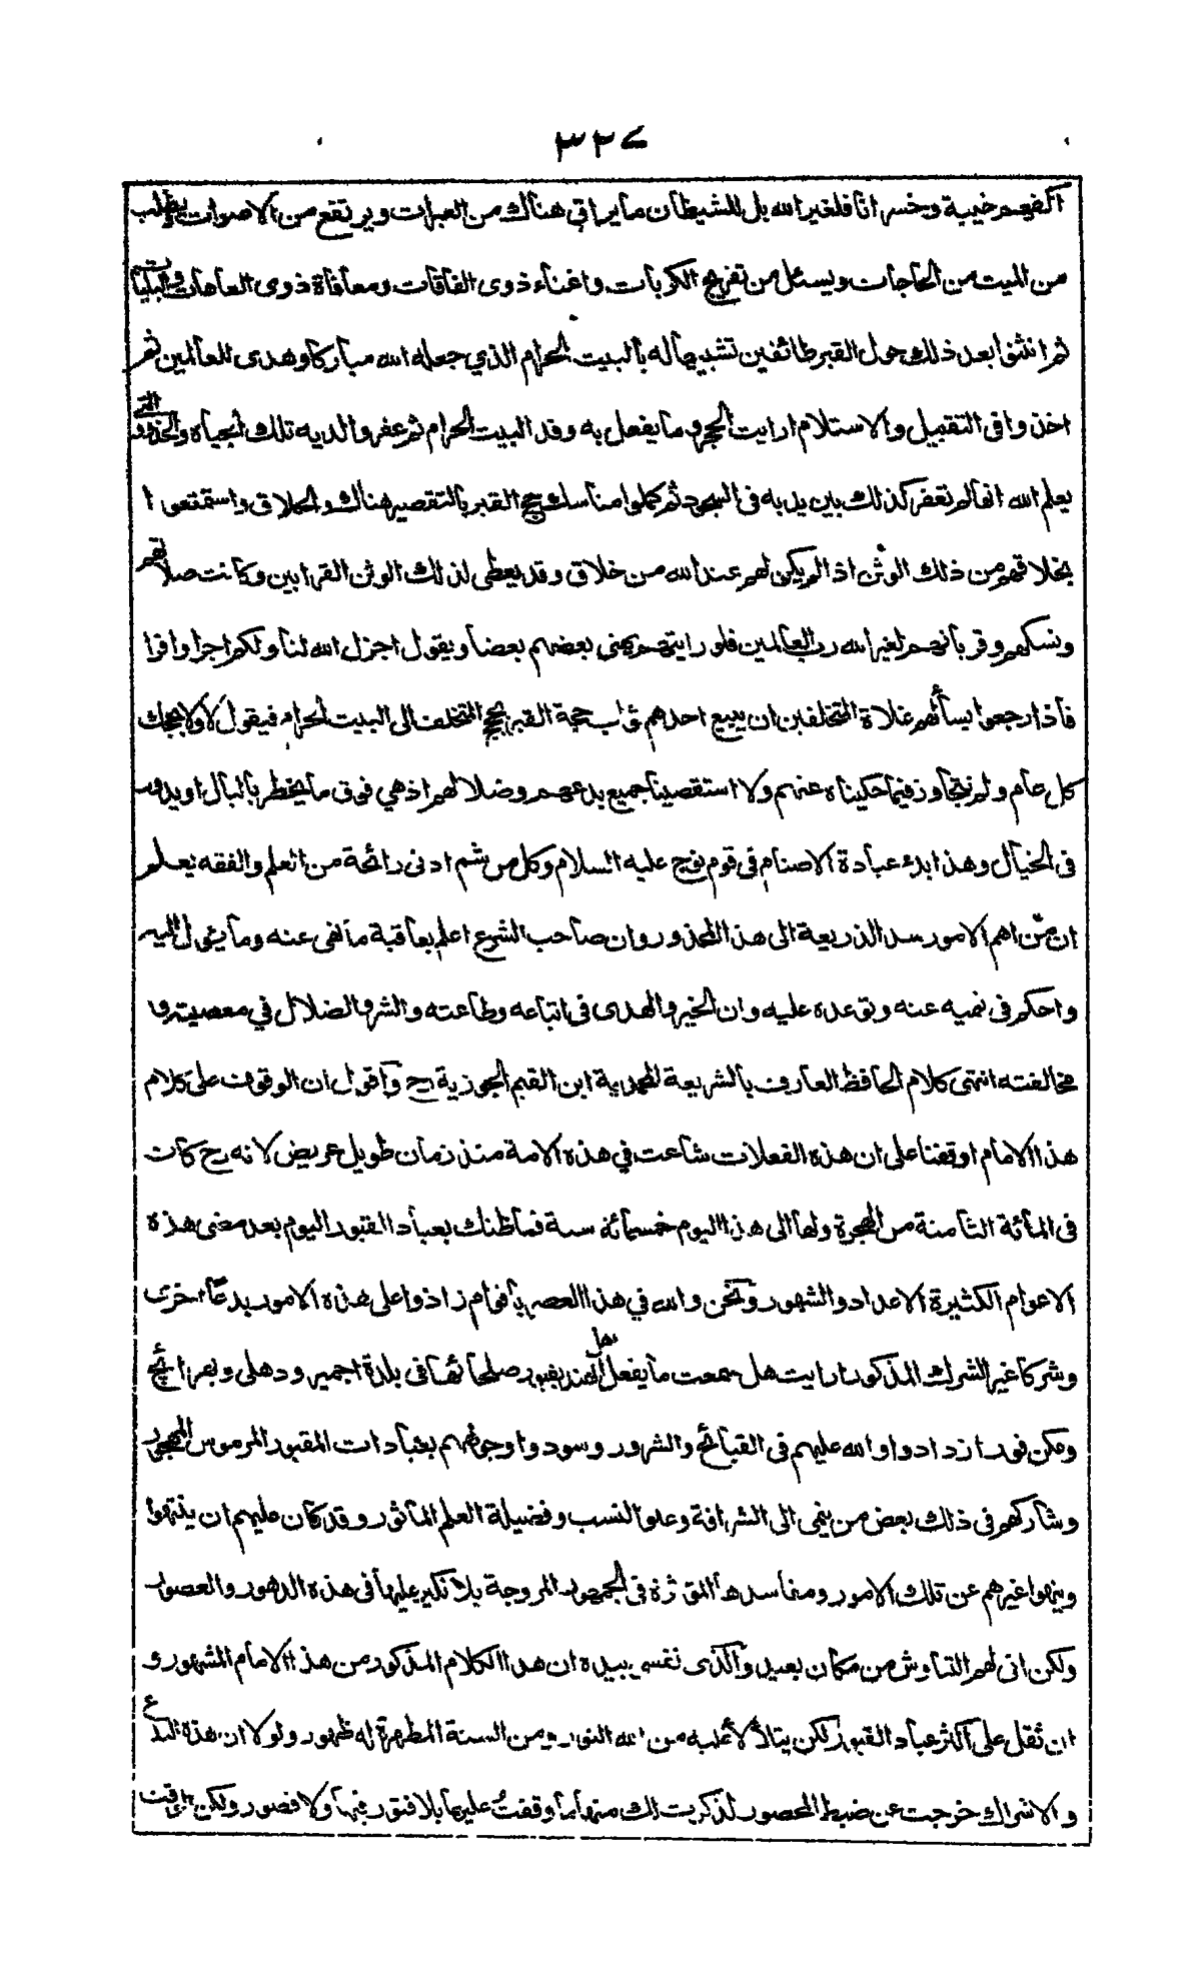 ٣٢٧
اكفهم خيبة وخسرانا فلغير الله بل للشيطان ما يراق هناك من العبرات ويرتفع من الاصوات يطلب
من الميت من الحاجات ويسئل من تفريج الكربات واغناء ذوى الفاقات ومعافاة ذوى العاهات والبليات
ثم انثوا بعد ذلك حول القبر طائفين تشبيها له بالبيت الحرام الذي جعله الله مباركا وهدى للعالمين ثم
اخذوا فى التقبيل والاستلام ارايت الحجر وما يفعل به وفد البيت الحرام ثم عفروا لديه تلك الجباه والخدود التى
يعلم الله انها لم تعفر كذلك بين يديه فى السجود ثم كملوا مناسك حج القبر بالتقصير هناك والحلاق واستمتعوا
بخلاقهم من ذلك الوثن اذ لم يكن لهم عند الله من خلاق وقد يعطى لذلك الوثن القرابين وكانت صلاتهم
ونسكهم وقربانهم لغير الله رب العالمين فلو رايتهم يهنى بعضهم بعضا ويقول اجزل الله لنا ولكم اجرا وافرا
فاذا رجعوا يسألهم غلاة المتخلفين ان يبيع احدهم ثواب حجة القبر بحج المتخلف الى البيت الحرام فيقول لا ولا بحجك
كل عام ولم نتجاوز فيما حكيناه عنهم ولا استقصينا جميع بدعهم وضلالهم اذ هي فوق ما يخطر بالبال او يدور
فى الخيال وهذا ابدء عبادة الاصنام فى قوم نوح عليه السلام وكل من شم ادنى رائحة من العلم والفقه يعلم
ان من اهم الامور سد الذريعة الى هذا المحذور وان صاحب الشرع اعلم بعاقبة ما نهى عنه وما يئول اليه
واحكم فى نهيه عنه وتوعده عليه وان الخير والهدى فى اتباعه وطاعته والشر والضلال في معصيته و
مخالفته انتهى كلام الحافظ العارف بالشريعة المحمدية ابن القيم الجوزية رح واقول ان الوقوف على كلام
هذا الامام اوقفنا على ان هذه الفعلات شاعت في هذه الامة منذ زمان طويل عريض لانه رح كان
فى المائة الثامنة من الهجرة ولها الى هذا اليوم خمسمائة سنة فما ظنك بعباد القبور اليوم بعد مضى هذه
الاعوام الكثيرة الاعداد والشهور ونحن والله في هذا العصر باقوام زادوا على هذه الامور بدعا اخرى
وشركا غير الشرك المذكور ارايت هل سمعت ما يفعل اهل الهند بقبور صلحائها فى بلدة اجمير ودهلى وبهرائج
ومكن فور ازدادوا والله عليهم فى القبائح والشرور وسودوا وجوههم بعبادات المقبور المرموس المهجور
وشاركهم فى ذلك بعض من ينمى الى الشرافة وعلو النسب وفضيلة العلم المأثور وقد كان عليهم ان ينتهوا
وينهوا غيرهم عن تلك الامور ومفاسدها المؤثرة فى الجمهور المروجة بلا نكير عليها فى هذه الدهور والعصور
ولكن انى لهم التناوش من مكان بعيد والذى نفسي بيده ان هذا الكلام المذكور من هذا الامام المشهور و
ان ثقل على اكثر عباد القبور لكن يتلألأ عليه من الله النور ومن السنة المطهرة له ظهور ولولا ان هذه البدع
والاشراك خرجت عن ضبط المحصور لذكرت لك منها ما وقفت عليها بلا فتور فيها ولا قصور ولكن